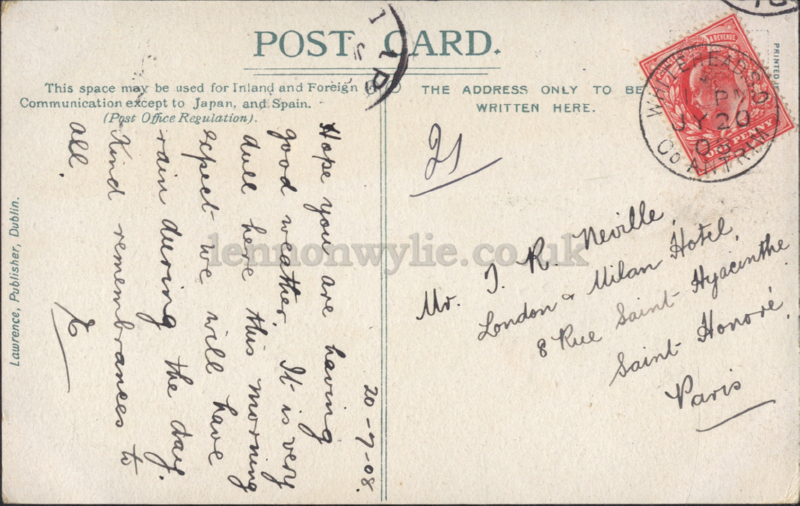 POST CARD.
This space may be used for Inland and Foreign
Communication except to Japan, and Spain.
(Post Office Regulation).
THE ADDRESS ONLY TO BE
WRITTEN HERE.
PRINTED IN
& REVENUE
ONE PENNY
WHITEHEAD S.O
PM
JY 20
08
CO ANTRIM
21
20-7-08.
Hope you are having
good weather. It is very
dull here this morning
expect we will have
rain during the day.
Kind remembrances to
all.
E
Mr. J. R. Neville,
London & Milan Hotel,
8 Rue Saint Hyacinthe
Saint Honoré.
Paris
Lawrence, Publisher, Dublin.
lennonwylie.co.uk